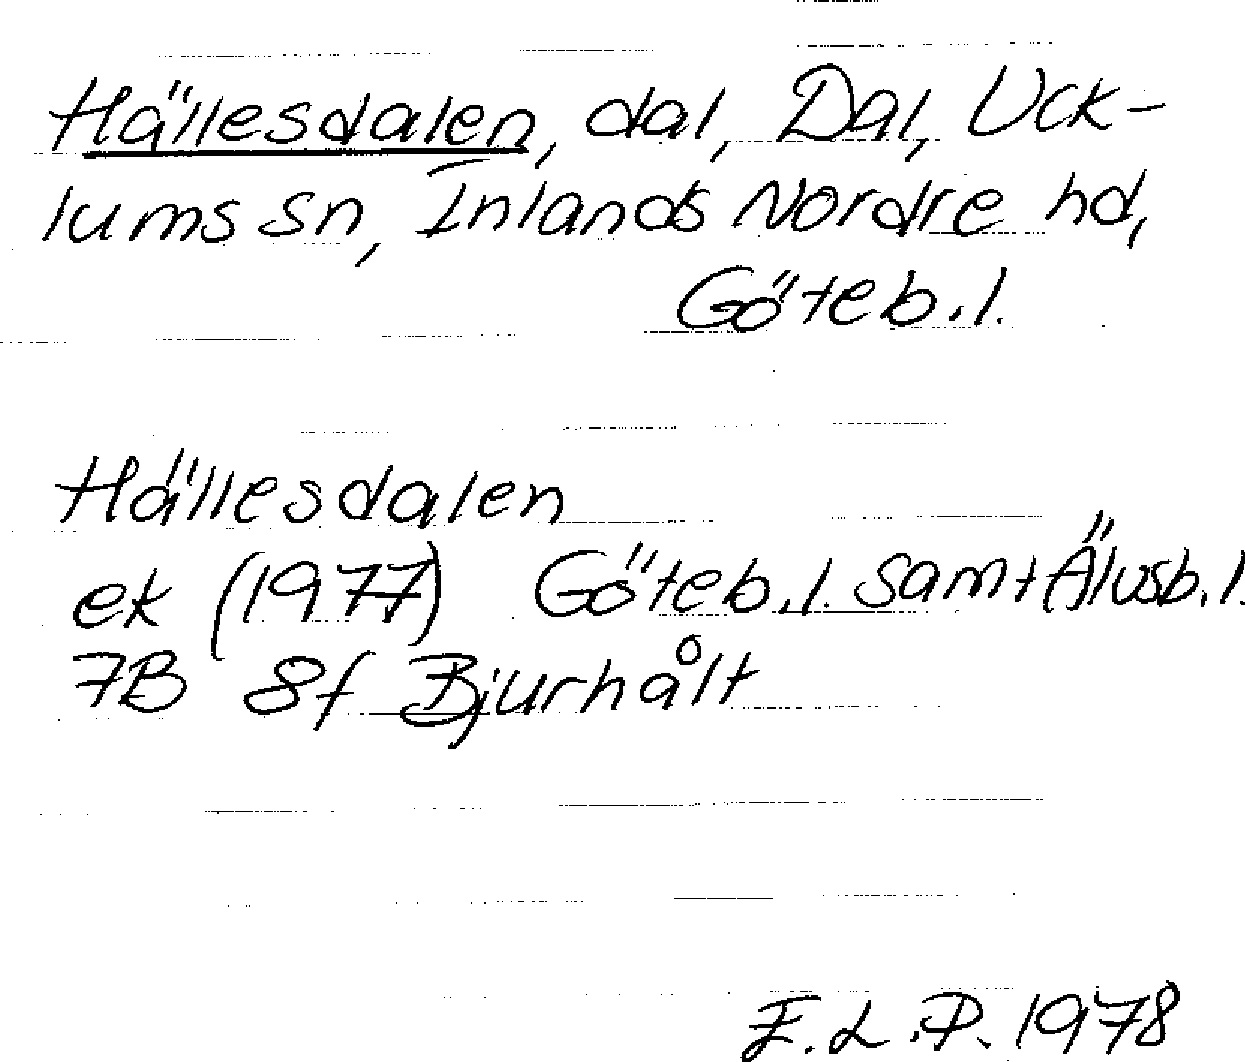 Hällesdalen, dal, Dal, Uck-
lums sn, Inlands Nordre hd,
Göteb.l.
Hällesdalen
ek (1977) Göteb.l. samt Älvsb.l.
7B 8f Bjurhålt
E.L.P. 1978